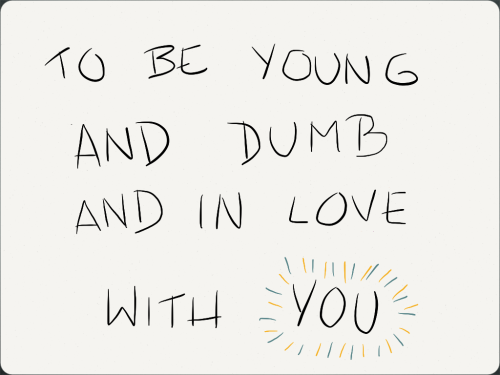 TO BE YOUNG
AND DUMB
AND IN LOVE
WITH YOU